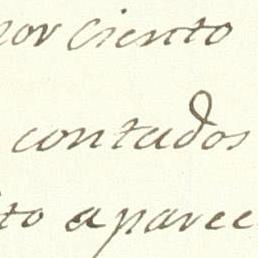 por Ciento
contados
to aparece